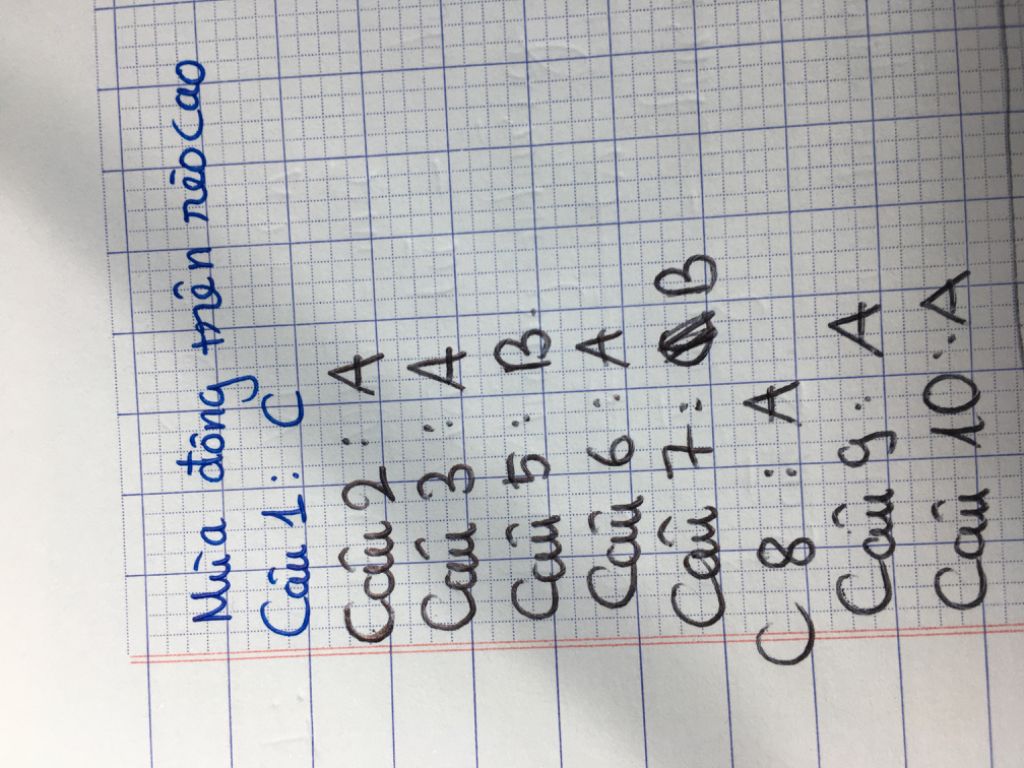 Mùa đông trên rẻo cao
Câu 1: C
Câu 2: A
Câu 3: A
Câu 5: B.
Câu 6: A
Câu 7: B
C 8: A
Câu 9: A
Câu 10: A